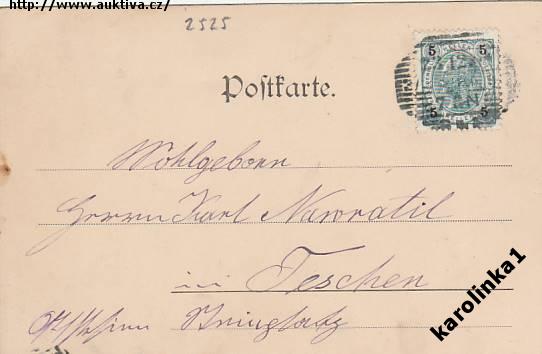 http://www.auktiva.cz/
2525
5 5
Postkarte.
5 5
Wohlgeborn
Herrn Karl Nawratil
in Teschen
karolinka1